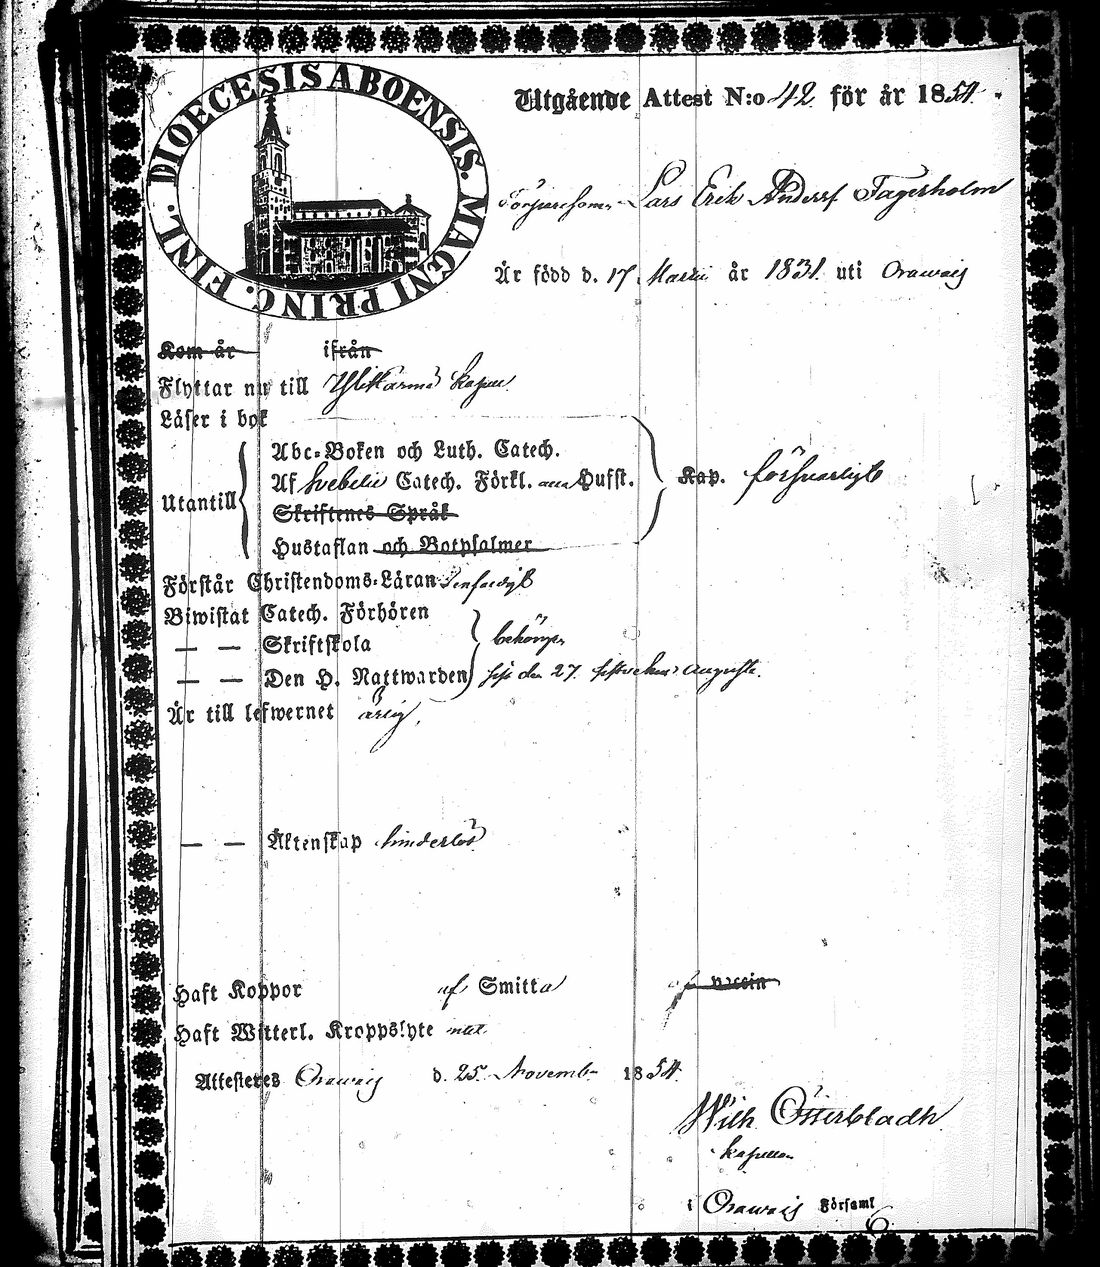 DIOECESIS ABOENSIS. MAGNI PRINC. FINL.
Utgående Attest N:o 42 för år 1854.
Lars Erik Anderss Fagerholm
Är född d. 17 Martii år 1831. uti Orawais
Kom år ifrån
Flyttar nu till Ylikärmä kapell
Läser i bok
Utantill
Abc-Boken och Luth. Catech.
Af Svebelii Catech. Förkl. Hufst.
Skriftenes Språk
Hustaflan och Botpsalmer
Kap. försvarligt
Förstår Christendoms-Läran
Biwistat Catech. Förhören
— — Skriftskola
— — Den H. Nattwarden sist den 27. Augusti.
Är till lefwernet ärlig,
— — Äktenskap hinderlös
Haft Koppor af Smitta af vaccin
Haft Witterl. Kroppslyte
Attesteres Orawais d. 25. Novemb 1854.
Wilh Österbladh
kapellan
i Orawais Församl